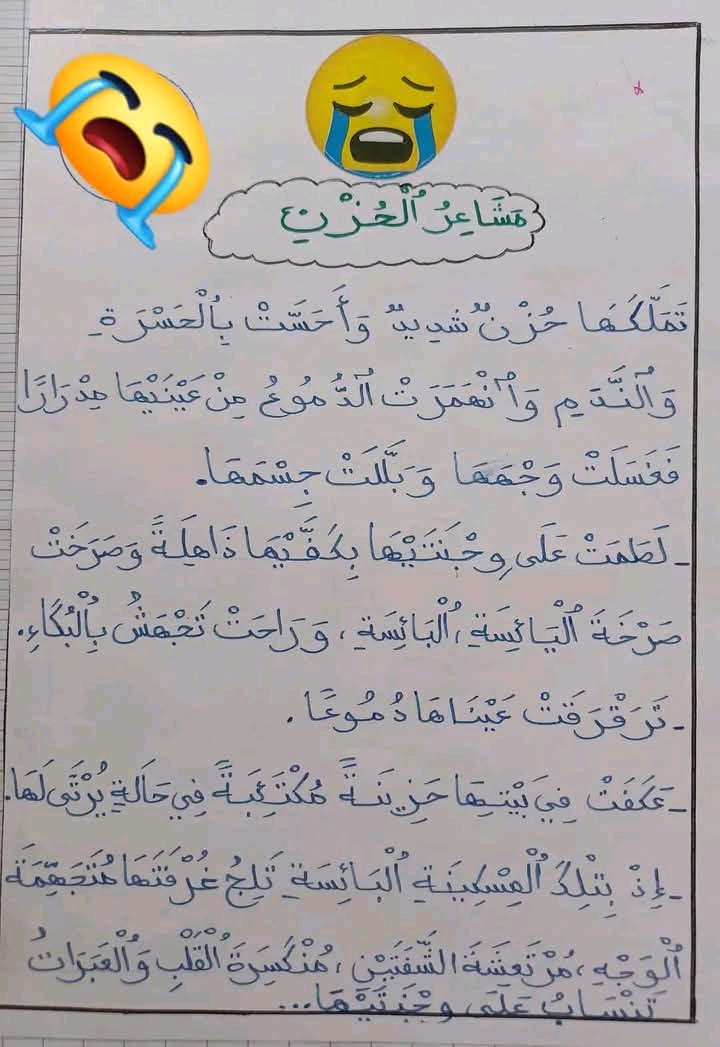 مَشَاعِرُ ٱلْحُزْنِ
تَمَلَّكَهَا حُزْنٌ شَدِيدٌ وَأَحَسَّتْ بِٱلْحَسْرَةِ
وَٱلنَّدَمِ وَٱنْهَمَرَتْ ٱلدُّمُوعُ مِنْ عَيْنَيْهَا مِدْرَارًا
فَغَسَلَتْ وَجْهَهَا وَبَلَّلَتْ جِسْمَهَا.
ـ لَطَمَتْ عَلَى وِجْنَتَيْهَا بِكَفَّيْهَا ذَاهِلَةً وَصَرَخَتْ
صَرْخَةَ ٱلْيَائِسَةِ، ٱلْبَائِسَةِ، وَرَاحَتْ تَجْهَشُ بِٱلْبُكَاءِ.
ـ تَرَقْرَقَتْ عَيْنَاهَا دُمُوعًا.
ـ عَكَفَتْ فِي بَيْتِهَا حَزِينَةً مُكْتَئِبَةً فِي حَالَةٍ يُرْثَى لَهَا.
ـ إِذْ بِتِلْكَ ٱلْمِسْكِينَةِ ٱلْبَائِسَةِ تَلِجُ غُرْفَتَهَا مُتَجَهِّمَةَ
ٱلْوَجْهِ، مُرْتَعِشَةَ الشَّفَتَيْنِ، مُنْكَسِرَةَ ٱلْقَلْبِ وَٱلْعَبَرَاتُ
تَنْسَابُ عَلَى وِجْنَتَيْهَا...